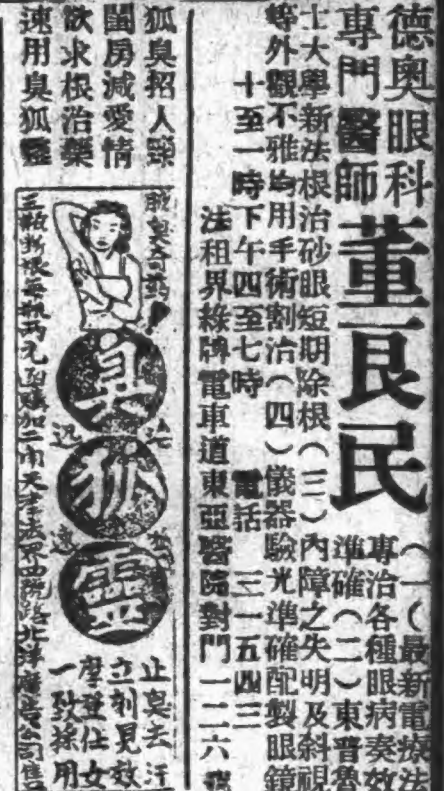 德奧眼科
專門醫師
董良民
（一）最新電療法
專治各種眼病奏效
準確（二）東普魯
士大學新法根治砂眼短期除根（三）內障之失明及斜視
等外觀不雅均用手術割治（四）儀器驗光準確配製眼鏡
十至一時下午四至七時　電話　三一五四三
法租界綠牌電車道東亞醫院對門一二六號
狐臭招人
閨房減愛情
欲求根治藥
速用臭狐靈
臭狐靈
止臭去汗
立刻見效
摩登仕女
一致採用
天津法界
北洋廣告公司售